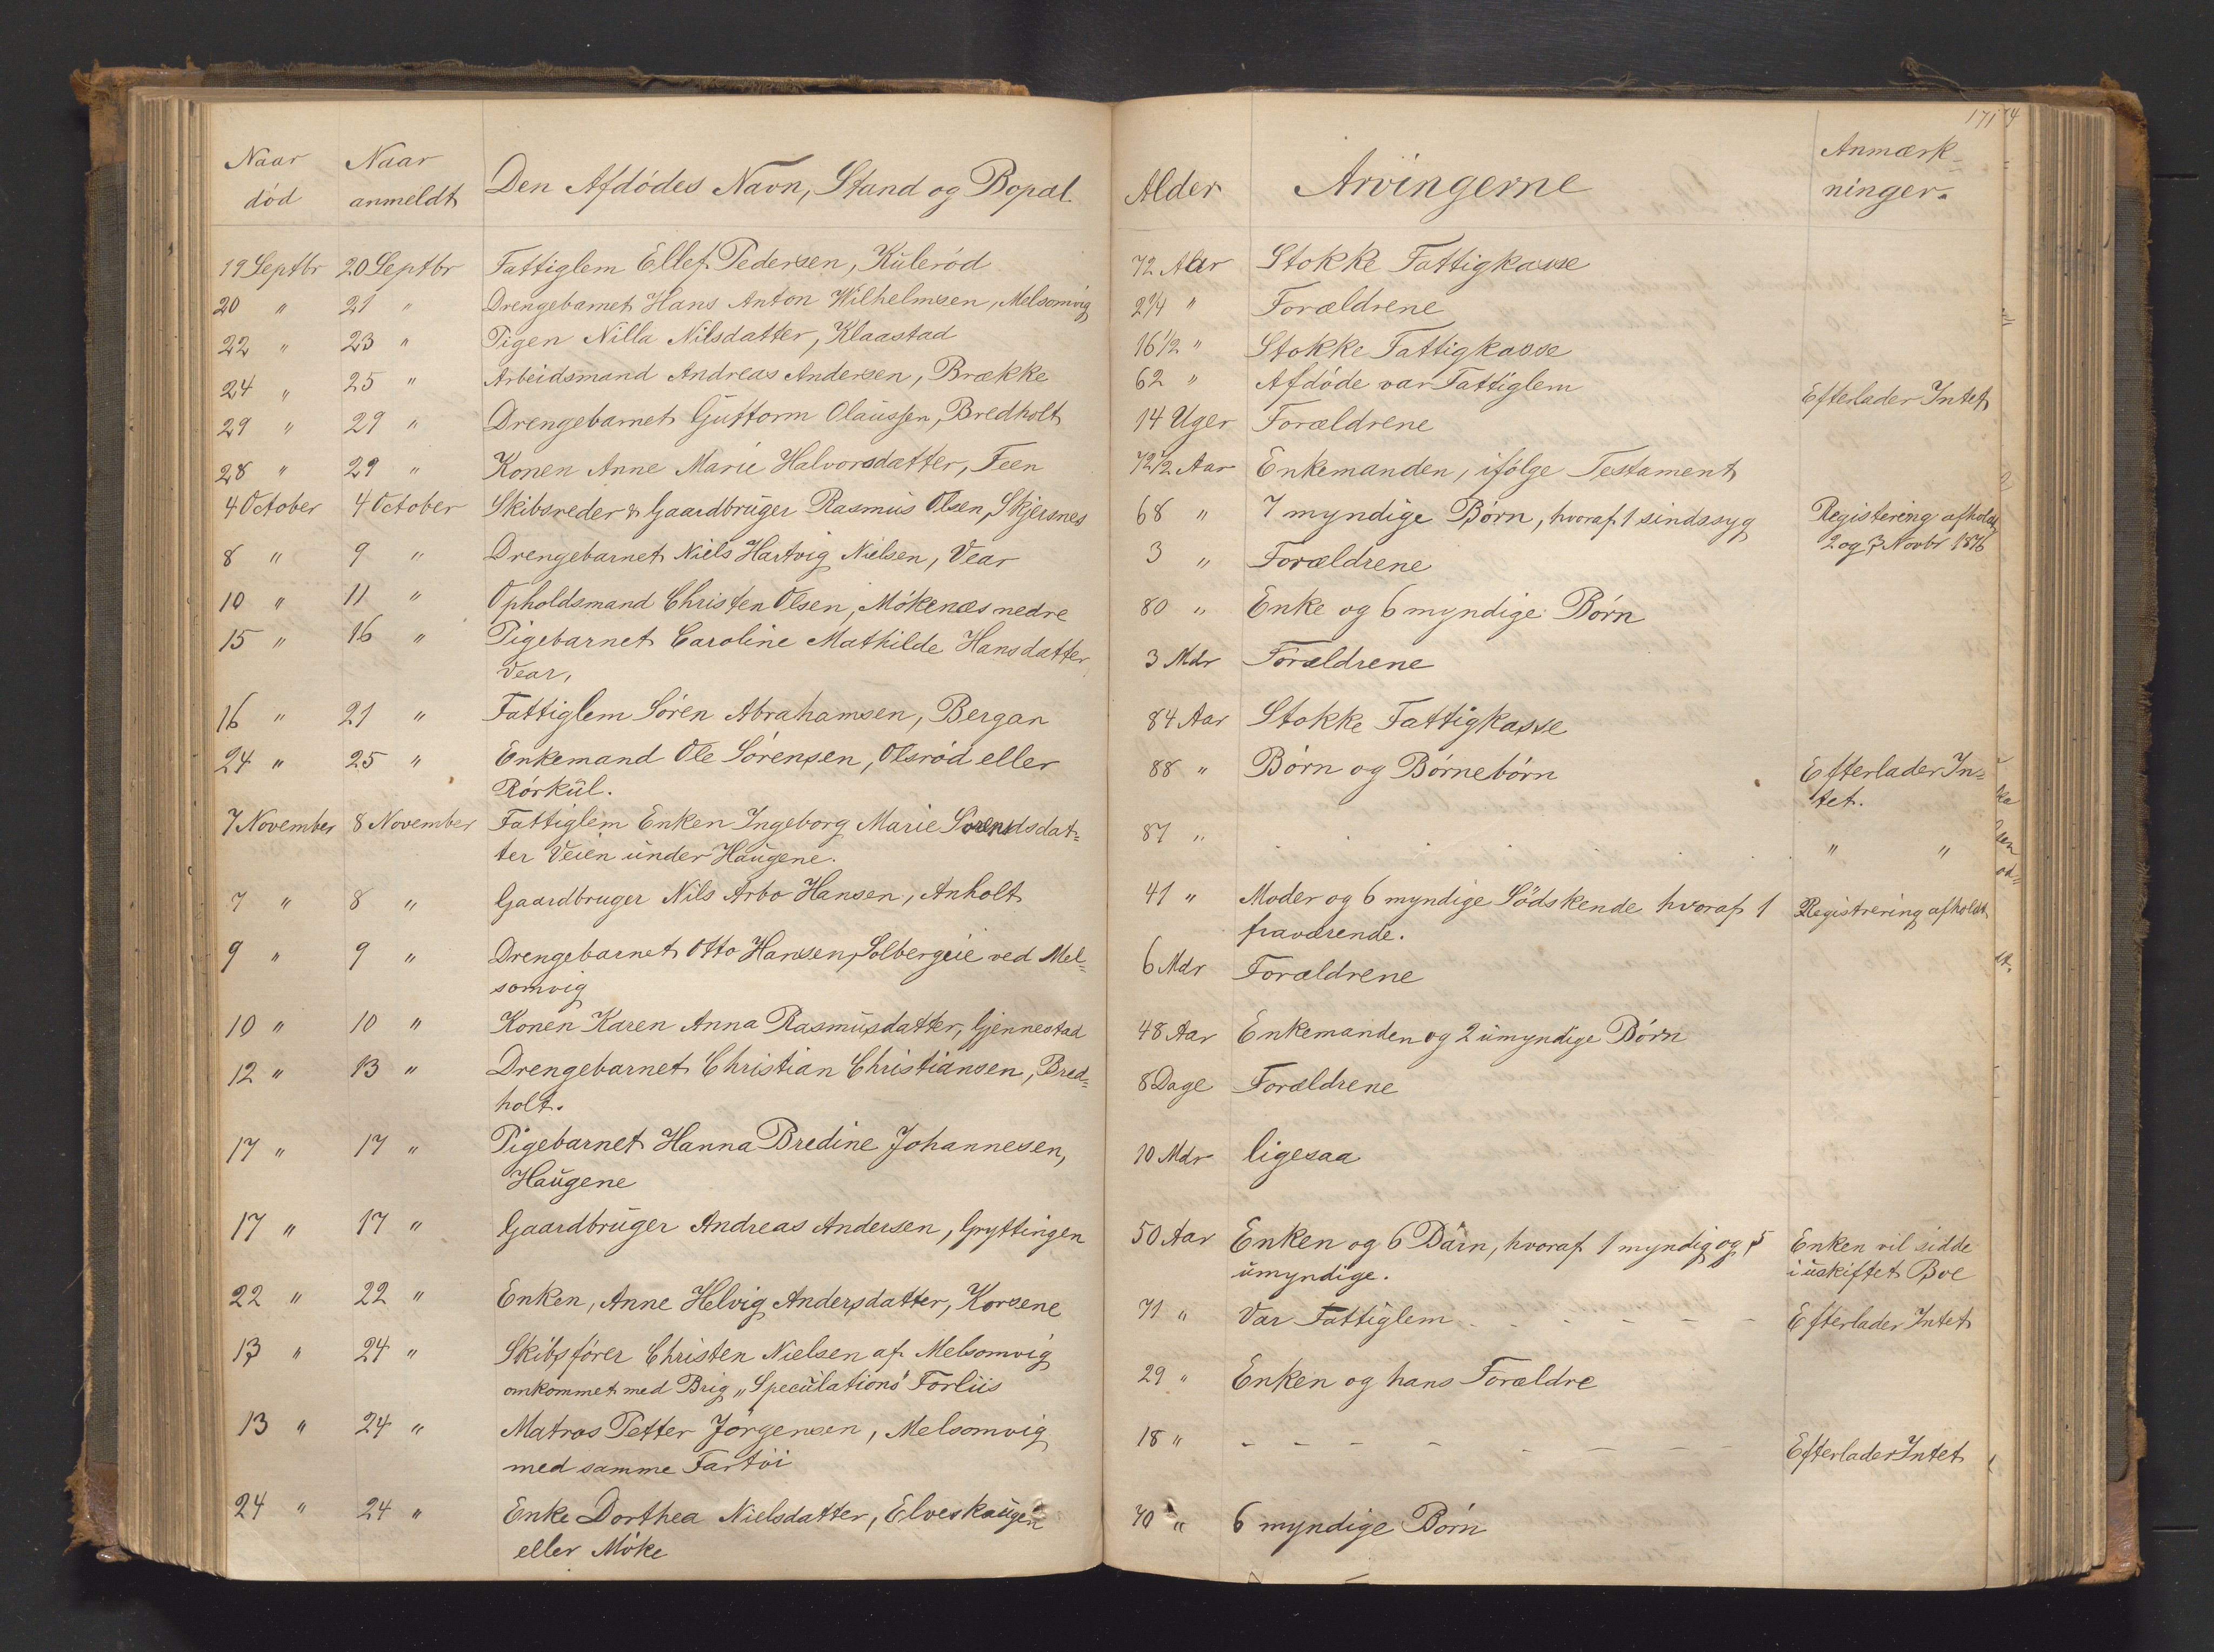 171
Naar død Naar anmeldt Den Afdödes Navn, Stand og Bopæl Alder Arvingerne Anmærk-
ninger.
19 Septbr 20 Septbr Fattiglem Ellef Pedersen, Kuleröd 72 Aar Stokke Fattigkasse
20 " 21 " Drengebarnet Hans Anton Wilhelmsen, Melsomvig 2 1/4 " Forældrene
22 " 23 " Pigen Nilla Nilsdatter, Klaastad 16 1/2 " Stokke Fattigkasse
24 " 25 " Arbeidsmand Andreas Andersen, Brække 62 " Afdöde var Fattiglem Efterlader Intet
29 " 29 " Drengebarnet Guttorm Olaussen, Bredholt 14 Uger Forældrene
28 " 29 " Konen Anne Marie Halvorsdatter, Feen 72 1/2 Aar Enkemanden, ifölge Testament
4 October 4 October Skibsreder & Gaardbruger Rasmus Olsen, Skjersnes 68 " 7 myndige Börn, hvoraf 1 sindssyg Registrering afholdt
2 og 3 Novbr 1876
8 " 9 " Drengebarnet Niels Hartvig Nielsen, Vear 3 " Forældrene
10 " 11 " Opholdsmand Christen Olsen, Mökenæs nedre 80 " Enke og 6 myndige Börn
15 " 16 " Pigebarnet Caroline Mathilde Hansdatter
Vear, 3 Mdr Forældrene
16 " 21 " Fattiglem Sören Abrahamsen, Bergan 84 Aar Stokke Fattigkasse
24 " 25 " Enkemand Ole Sörensen, Olsröd eller 88 " Börn og Börnebörn Efterlader In-
Rörkül. tet.
7 November 8 November Fattiglem Enken Ingeborg Marie Sorensdat-
ter Veien under Haugene. 87 " " "
7 " 8 " Gaardbruger Nils Arbo Hansen, Anholt 41 " Moder og 6 myndige Södskende hvoraf 1 Registrering afholdt
fraværende.
9 " 9 " Drengebarnet Otto Hansen, Solbergeie ved Mel-
somvig 6 Mdr Forældrene
10 " 10 " Konen Karen Anna Rasmusdatter, Gjennestad 48 Aar Enkemanden og 2 umyndige Börn
12 " 13 " Drengebarnet Christian Christiansen, Bred-
holt. 8 Dage Forældrene
17 " 17 " Pigebarnet Hanna Bredine Johannesen,
Haugene 10 Mdr ligesaa
17 " 17 " Gaardbruger Andreas Andersen, Gryttingen 50 Aar Enken og 6 Börn, hvoraf 1 myndig og 5 Enken vil sidde
umyndige. i uskiftet Boe
22 " 22 " Enken, Anne Helvig Andersdatter, Korsene 71 " Var Fattiglem - - - - - - Efterlader Intet
13 " 24 " Skibsförer Christen Nielsen af Melsomvig
omkommet med Brig „Speculations" Forliis 29 " Enken og hans Forældre
13 " 24 " Matros Petter Jörgensen, Melsomvig 18 " - - - - - - - Efterlader Intet
med samme Fartöi
24 " 24 " Enke Dorthea Nielsdatter, Elveskaugen 70 " 6 myndige Börn
eller Möke